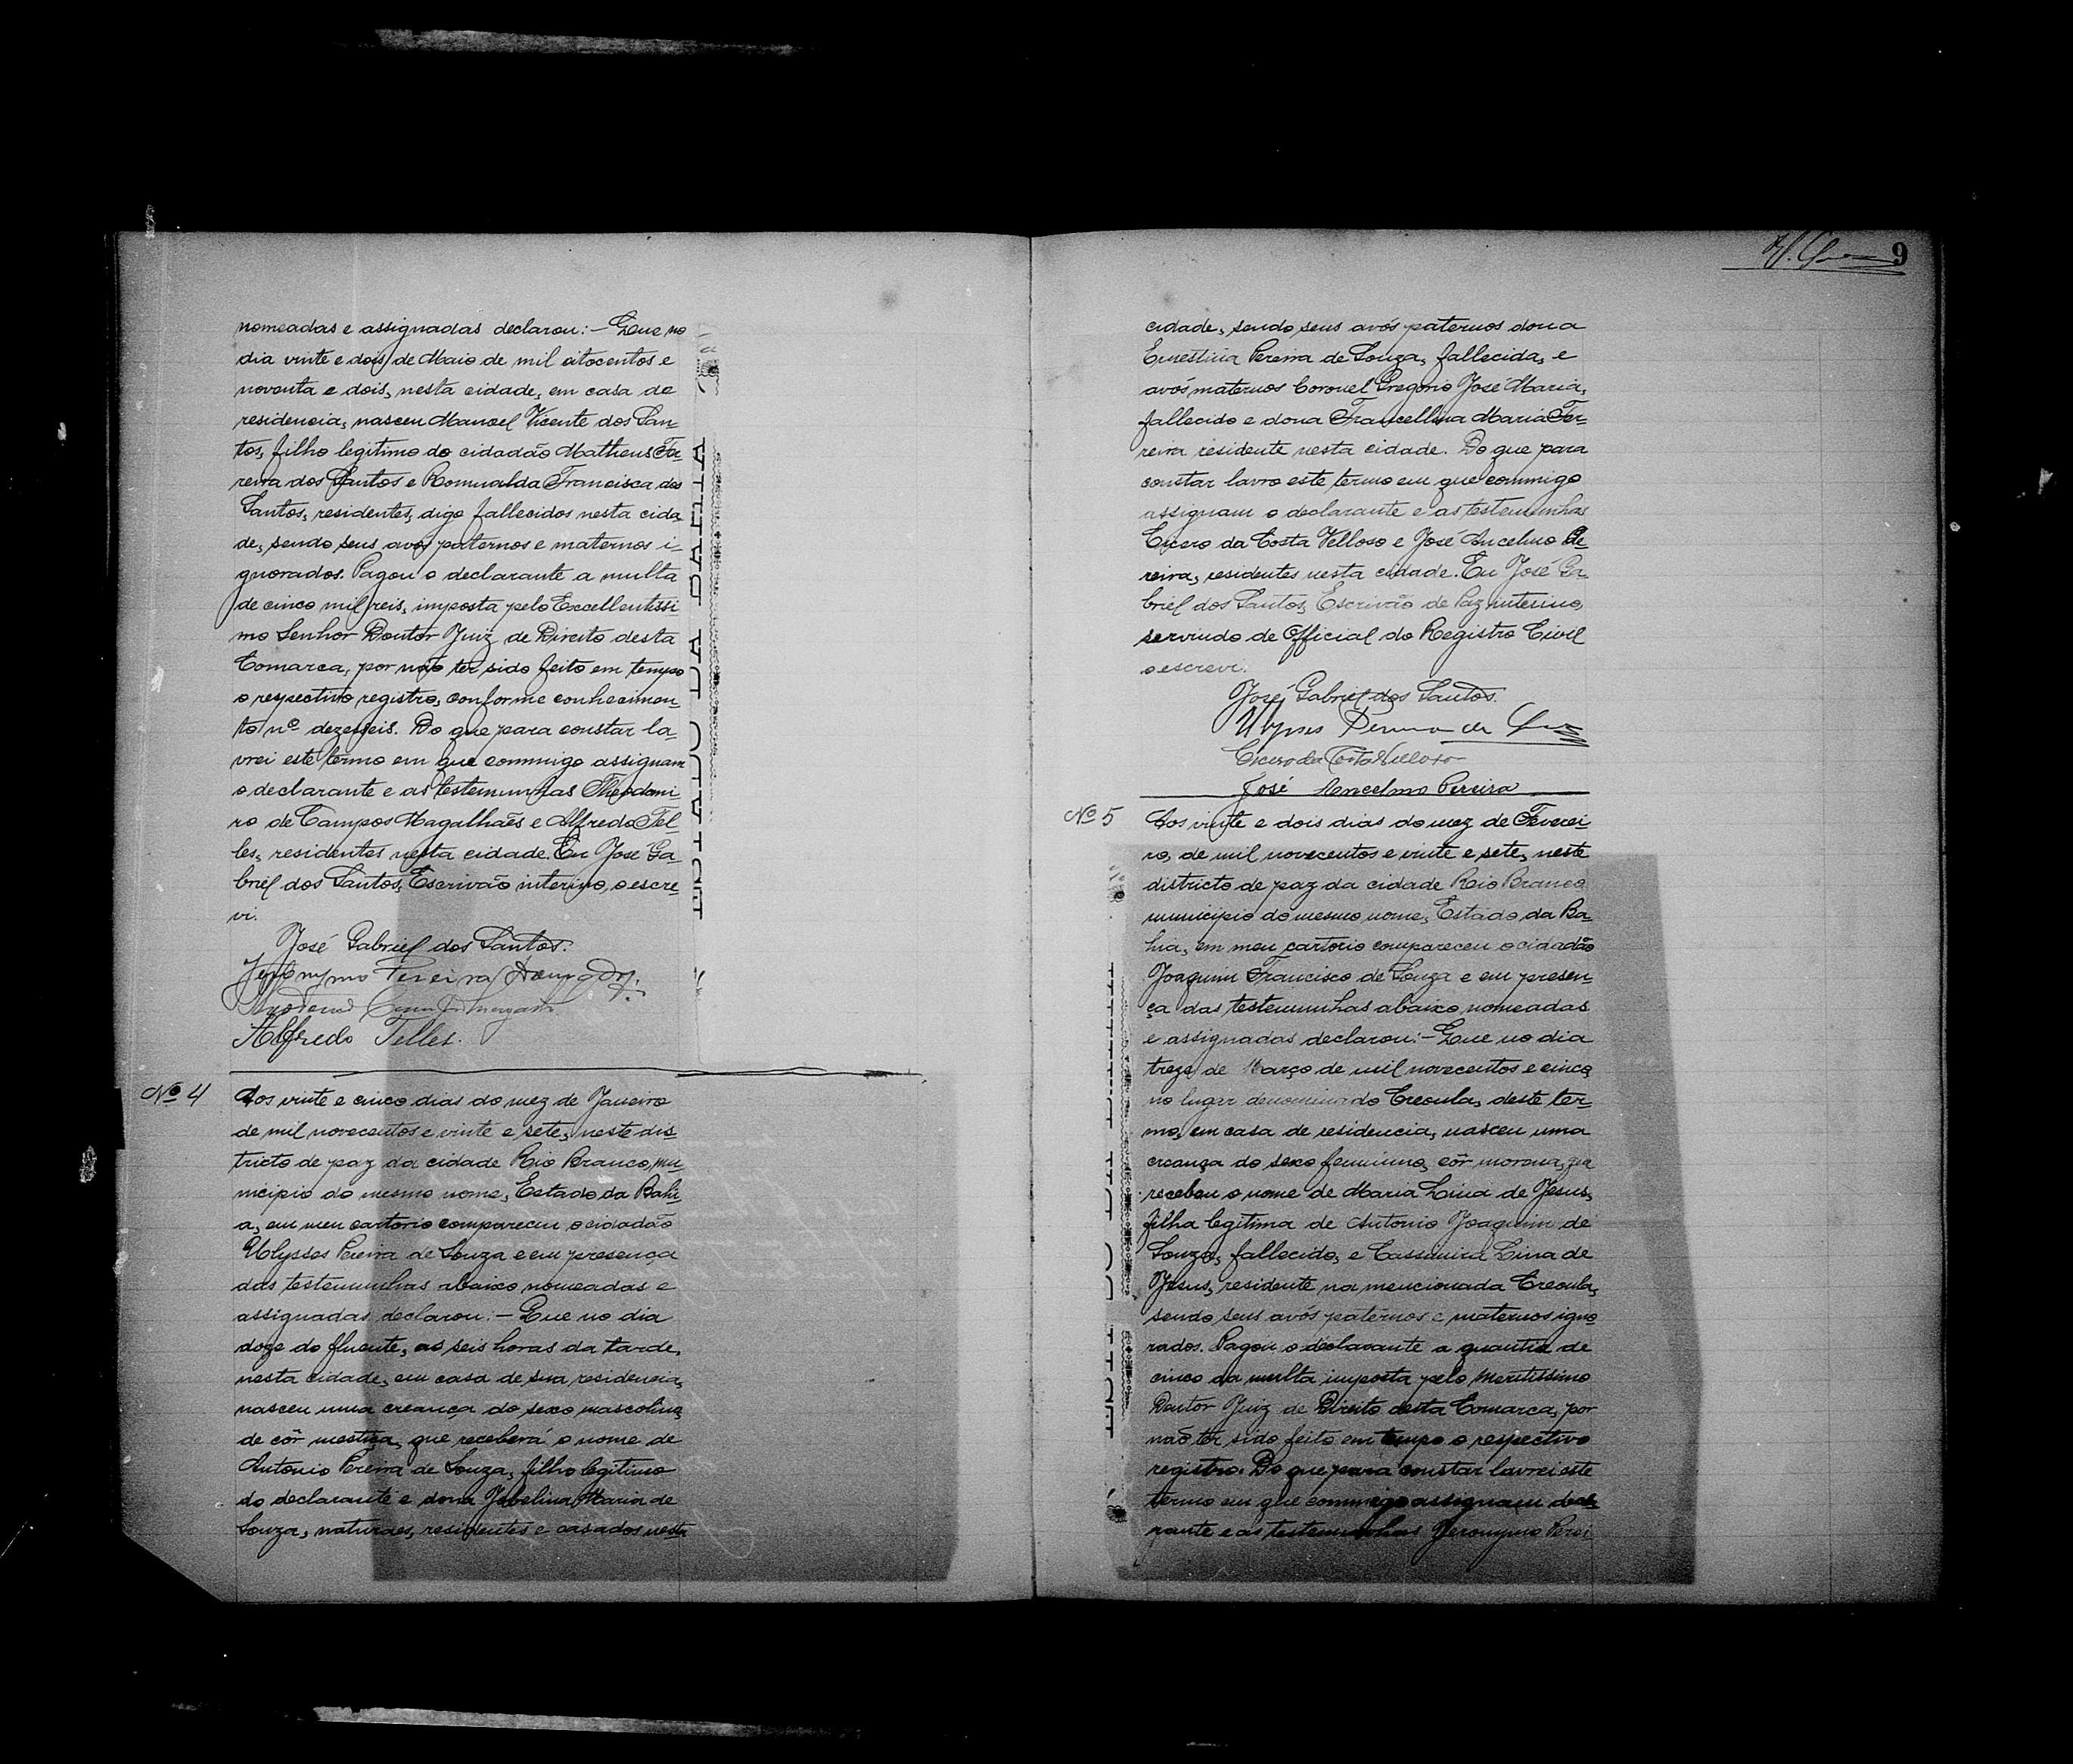 nomeadas e assignadas declarou:- Que no
dia vinte e dois de Maio de mil oitocentos e
noventa e dois, nesta cidade, em casa de
residencia, nasceu Manoel Vicente dos San-
tos, filho legitimo do cidadão Matheus Fer-
reira dos Santos e Romualda Francisca dos
Santos, residentes, digo fallecidos nesta cida-
de, sendo seus avós paternos e maternos i-
gnorados. Pagou o declarante a multa
de cinco mil reis, imposta pelo Excellentissi
mo Senhor Doutor Juiz de Direito desta
Comarca, por não ter sido feito em tempo
o respectivo registro, conforme conhecimen-
to nº dezeseis. Do que para constar la-
vrei este termo em que commigo assignam
o declarante e as testemunhas Theodomi-
ro de Campos Magalhães e Alfredo Tel-
les, residentes nesta cidade. Eu José Ga-
briel dos Santos, Escrivão interino, o escre-
vi.
José Gabriel dos Santos.
Jeronymo Pereira
Alfredo Telles.
Nº 4
Aos vinte e cinco dias do mez de Janeiro
de mil novecentos e vinte e sete, neste dis-
tricto de paz da cidade Rio Branco, mu-
nicipio do mesmo nome, Estado da Bahi-
a, em meu cartorio compareceu o cidadão
Ulysses Pereira de Souza e em presença
das testemunhas abaixo nomeadas e
assignadas declarou:- Que no dia
doze do fluente, as seis horas da tarde,
nesta cidade, em casa de sua residencia,
nasceu uma creança do sexo mascolino,
de côr mestiça, que receberá o nome de
Antonio Pereira de Souza, filho legitimo
do declarante e dona Maria de
Souza, naturaes, residentes e casados nesta
9
cidade, sendo seus avós paternos dona
Ernestina Pereira de Souza, fallecida, e
avós maternos Coronel Gregorio José Maria,
fallecido e dona Francellina Maria Fer-
reira residente nesta cidade. Do que para
constar lavro este termo em que commigo
assignam o declarante e as testemunhas
Cicero da Costa Velloso e José Ancelmo Pe-
reira, residentes nesta cidade. Eu José Ga-
briel dos Santos, Escrivão de Paz interino,
servindo de Official do Registro Civil
o escrevi.
José Gabriel dos Santos.
Ulysses Pereira de Souza
Cicero da Costa Velloso
José Ancelmo Pereira
Nº 5
Aos vinte e dois dias do mez de Feverei-
ro, de mil novecentos e vinte e sete, neste
districto de paz da cidade Rio Branco
municipio do mesmo nome, Estado da Ba-
hia, em meu cartorio compareceu o cidadão
Joaquim Francisco de Souza e em presen-
ça das testemunhas abaixo nomeadas
e assignadas declarou:- Que no dia
treze de Março de mil novecentos e cinco,
no lugar denominado Creoula, deste ter-
mo, em casa de residencia, nasceu uma
creança do sexo feminino, côr morena, que
recebeu o nome de Maria Lina de Jesus,
filha legitima de Antonio Joaquim de
Souza, fallecido, e Cassimira Lina de
Jesus, residente na mencionada Creoula,
sendo seus avós paternos e maternos igno
rados. Pagou o declarante a quantia de
cinco da multa imposta pelo Meritissimo
Doutor Juiz de Direito desta Comarca, por
não ter sido feito em tempo o respectivo
registro. Do que para constar lavrei este
termo em que commigo assignam decla-
rante e as testemunhas Jeronymo Perei